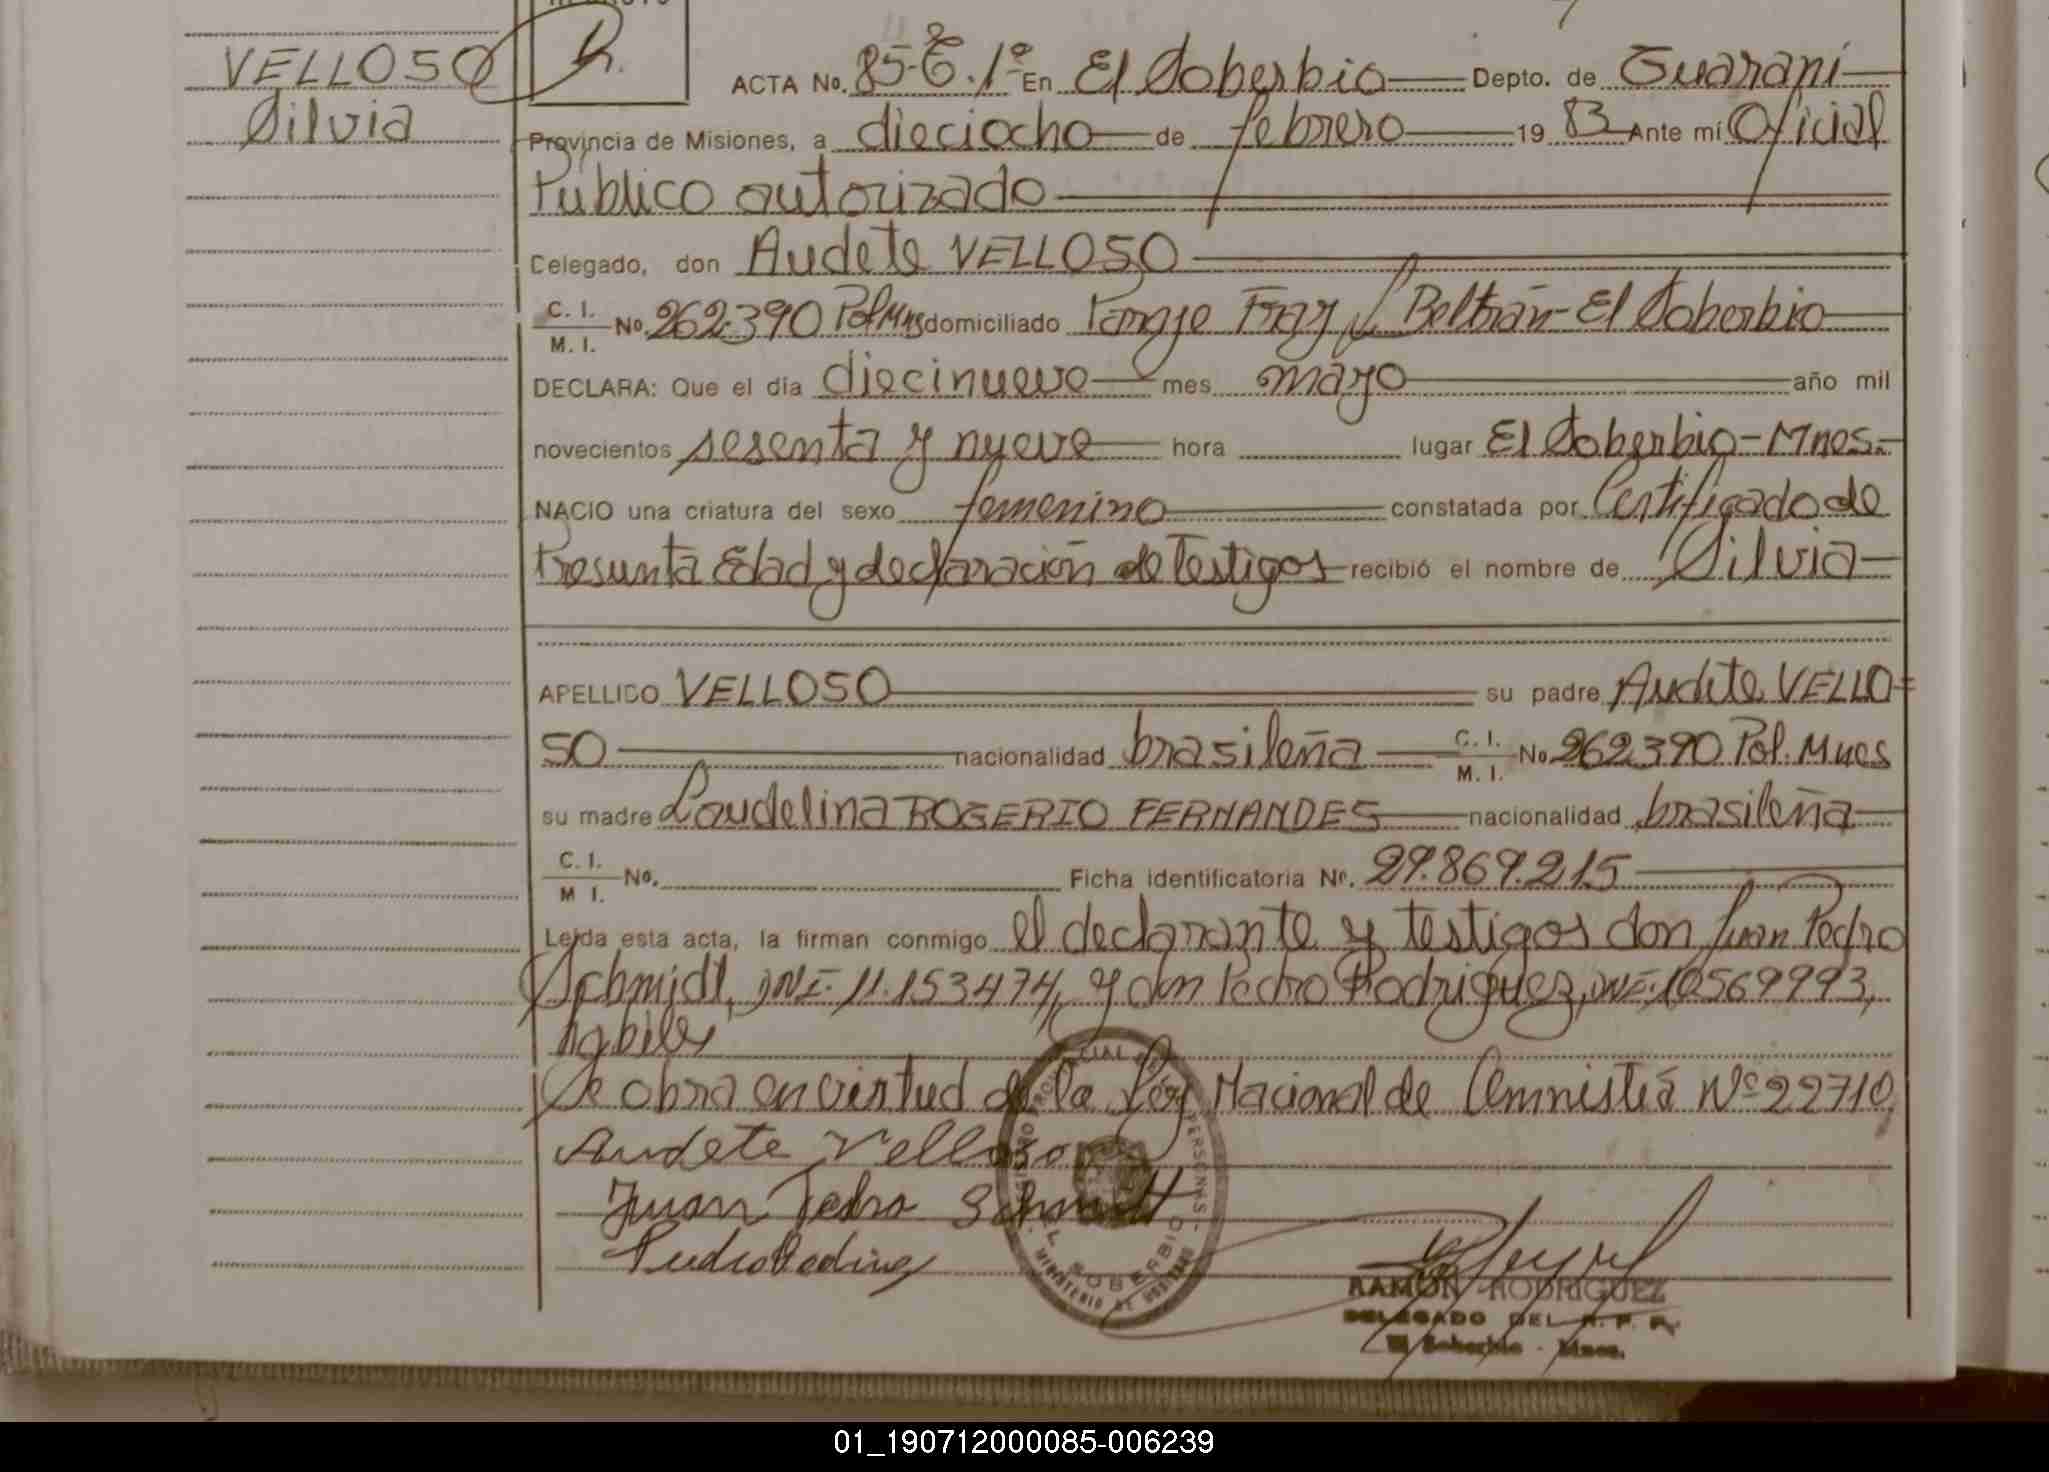 VELLOSO
Silvia
ACTA No. 85-T.1º En El Soberbio Depto. de Guaraní
Provincia de Misiones, a dieciocho de febrero 19 83 Ante mí Oficial
Público autorizado
Celegado, don Audete VELLOSO
C. I. / M. I. No. 262.390 Pol Mns domiciliado Paraje Fray L Beltrán - El Soberbio
DECLARA: Que el día diecinueve mes mayo año mil
novecientos sesenta y nueve hora lugar El Soberbio - Mnes.-
NACIO una criatura del sexo femenino constatada por Certificado de
Presunta Edad y declaración de Testigos recibió el nombre de Silvia
APELLICO VELLOSO su padre Audete VELLO=
SO nacionalidad brasileña C. I. / M. I. No 262390 Pol. Mnes
su madre Laudelina ROGERIO FERNANDES nacionalidad brasileña
C. I. / M I. No. Ficha identificatoria Nº. 29.869.215
Leída esta acta, la firman conmigo el declarante y testigos don Juan Pedro
Schmidt, DNI. 11.153474, y don Pedro Rodriguez, DNI. 10569993,
habiles
Se obra en virtud de la Ley Nacional de Amnistía Nº 22710,
Audete Velloso
Juan Pedro Schmidt
EL SOBERBIO
RAMON RODRIGUEZ
DELEGADO DEL R. P. P.
El Soberbio - Mnes.
01_190712000085-006239